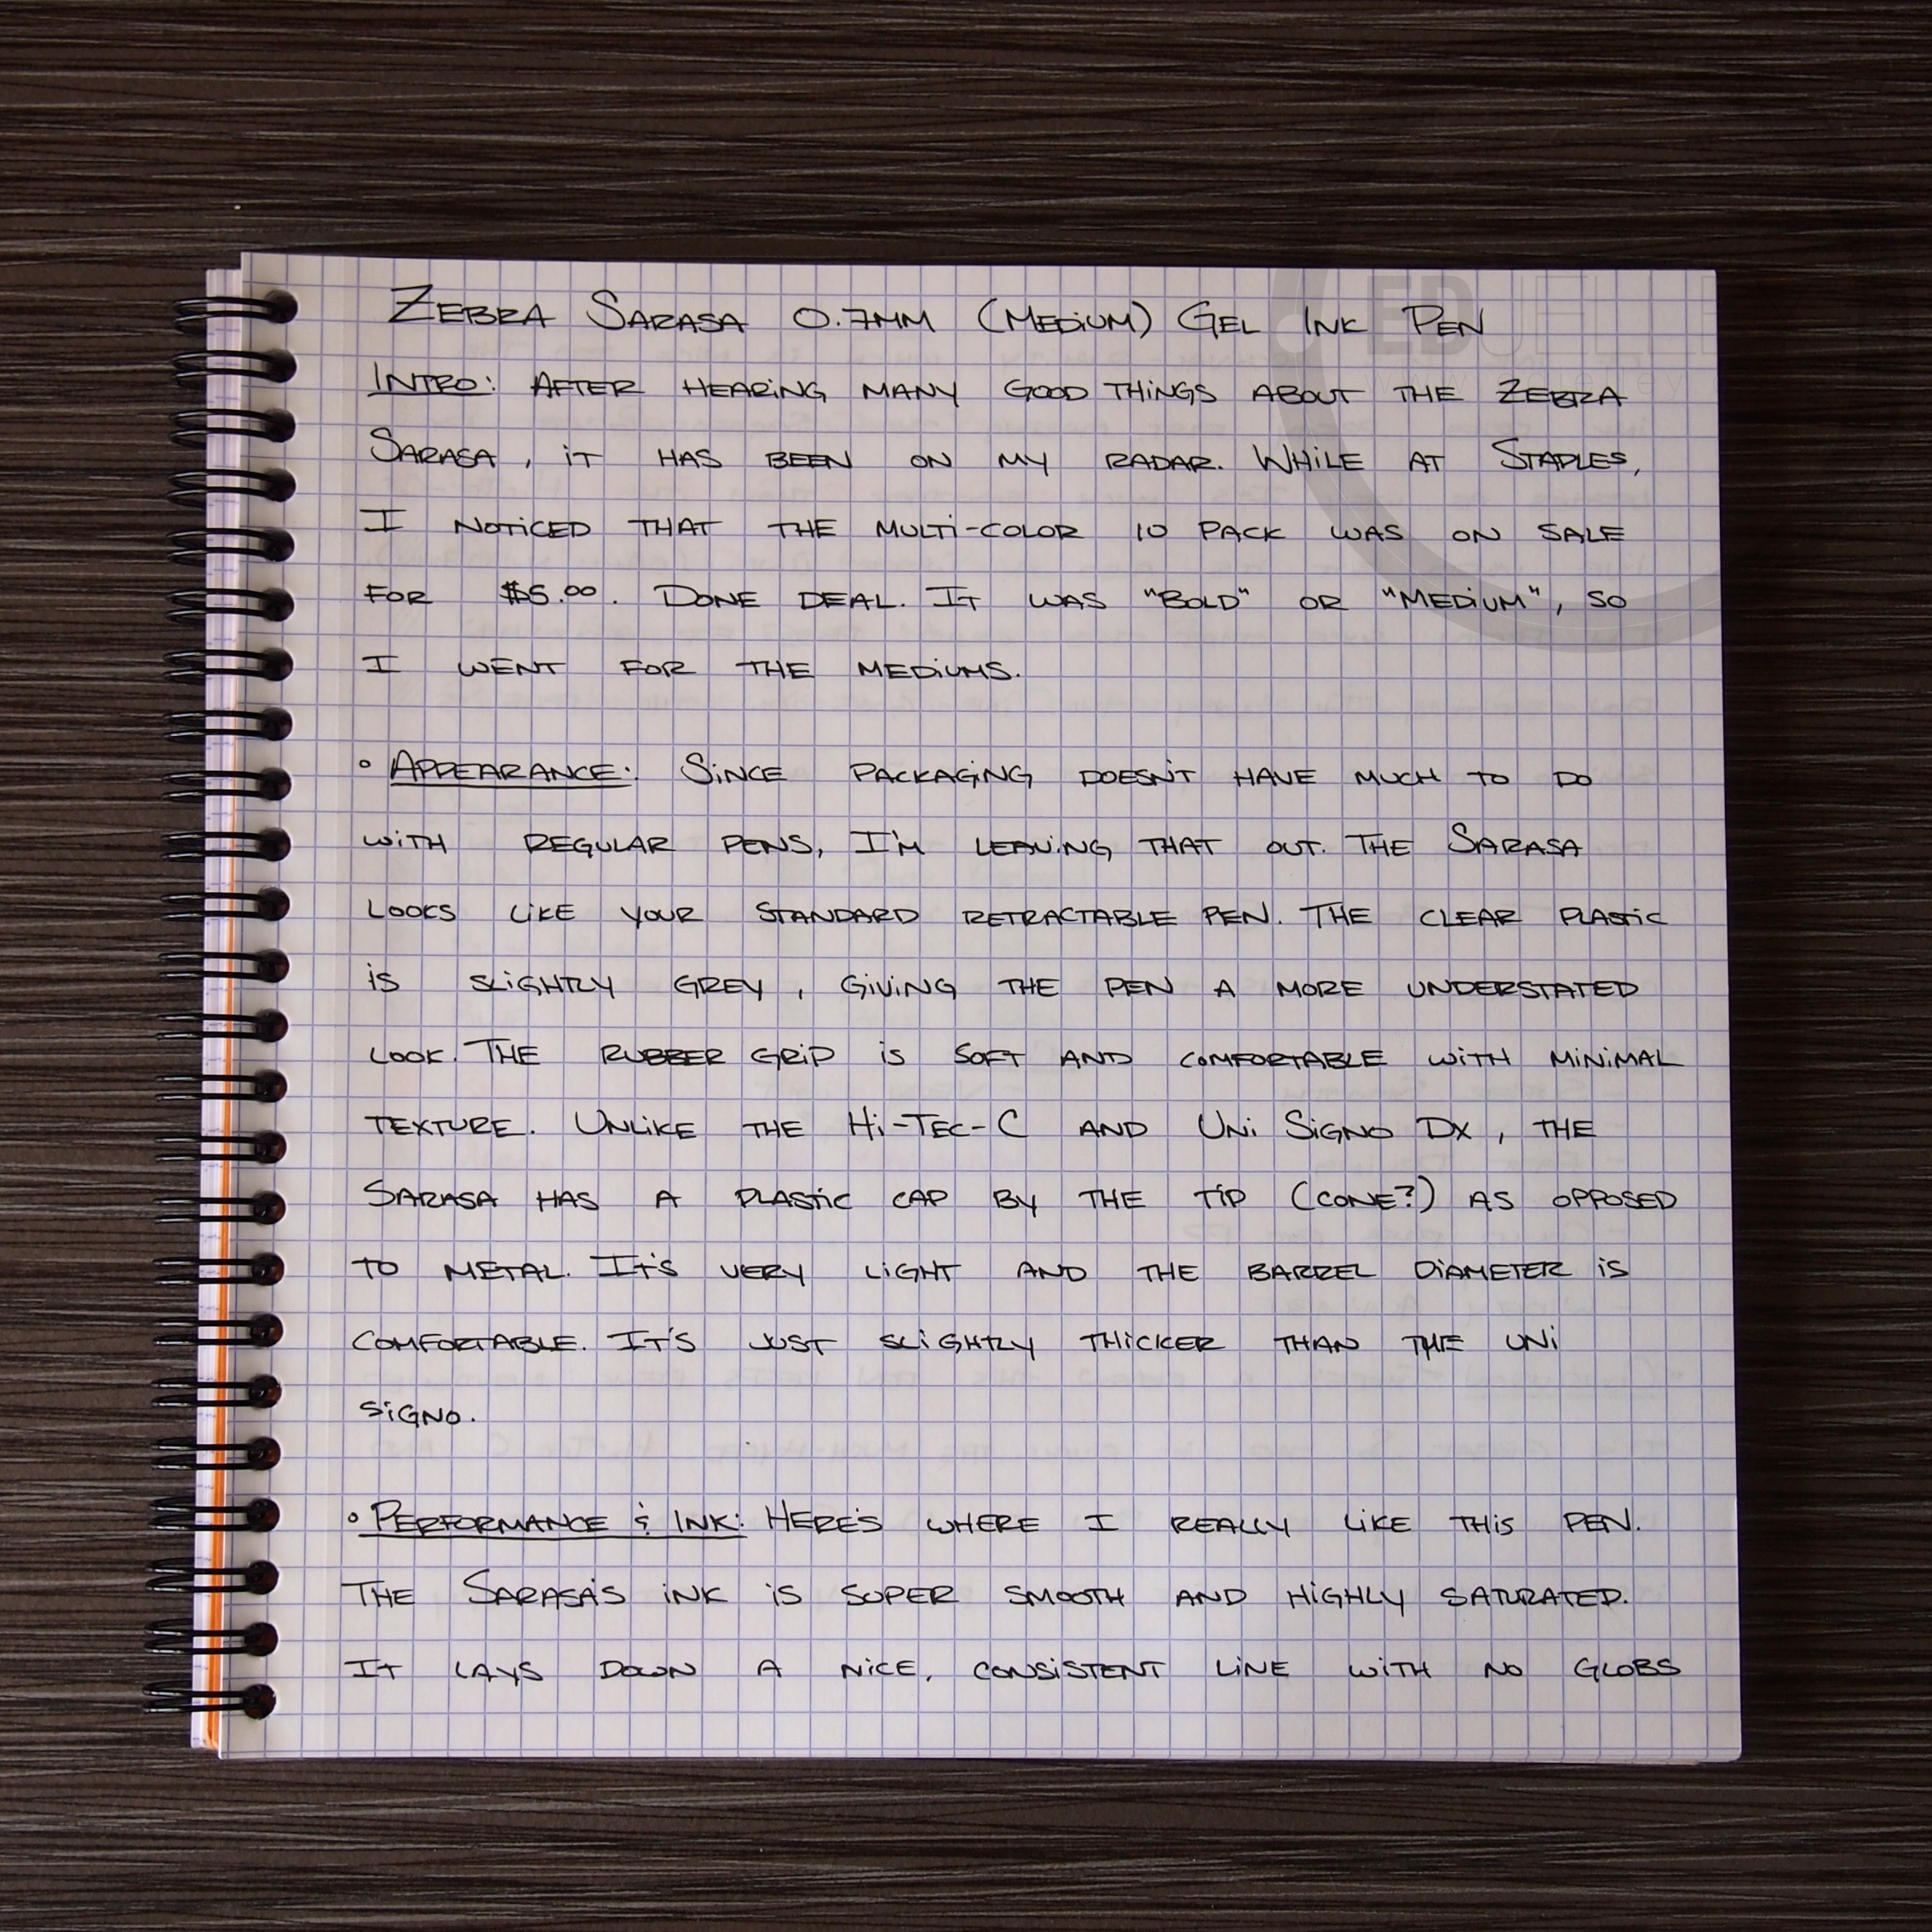 ZEBRA SARASA 0.7MM (MEDIUM) GEL INK PEN
INTRO: AFTER HEARING MANY GOOD THINGS ABOUT THE ZEBRA
SARASA, IT HAS BEEN ON MY RADAR. WHILE AT STAPLES,
I NOTICED THAT THE MULTI-COLOR 10 PACK WAS ON SALE
FOR $5.00. DONE DEAL. IT WAS "BOLD" OR "MEDIUM", SO
I WENT FOR THE MEDIUMS.
° APPEARANCE: SINCE PACKAGING DOESN'T HAVE MUCH TO DO
WITH REGULAR PENS, I'M LEAVING THAT OUT. THE SARASA
LOOKS LIKE YOUR STANDARD RETRACTABLE PEN. THE CLEAR PLASTIC
IS SLIGHTLY GREY, GIVING THE PEN A MORE UNDERSTATED
LOOK. THE RUBBER GRIP IS SOFT AND COMFORTABLE WITH MINIMAL
TEXTURE. UNLIKE THE HI-TEC-C AND UNI SIGNO DX, THE
SARASA HAS A PLASTIC CAP BY THE TIP (CONE?) AS OPPOSED
TO METAL. IT'S VERY LIGHT AND THE BARREL DIAMETER IS
COMFORTABLE. IT'S JUST SLIGHTLY THICKER THAN THE UNI
SIGNO.
° PERFORMANCE & INK: HERE'S WHERE I REALLY LIKE THIS PEN.
THE SARASA'S INK IS SUPER SMOOTH AND HIGHLY SATURATED.
IT LAYS DOWN A NICE, CONSISTENT LINE WITH NO GLOBS